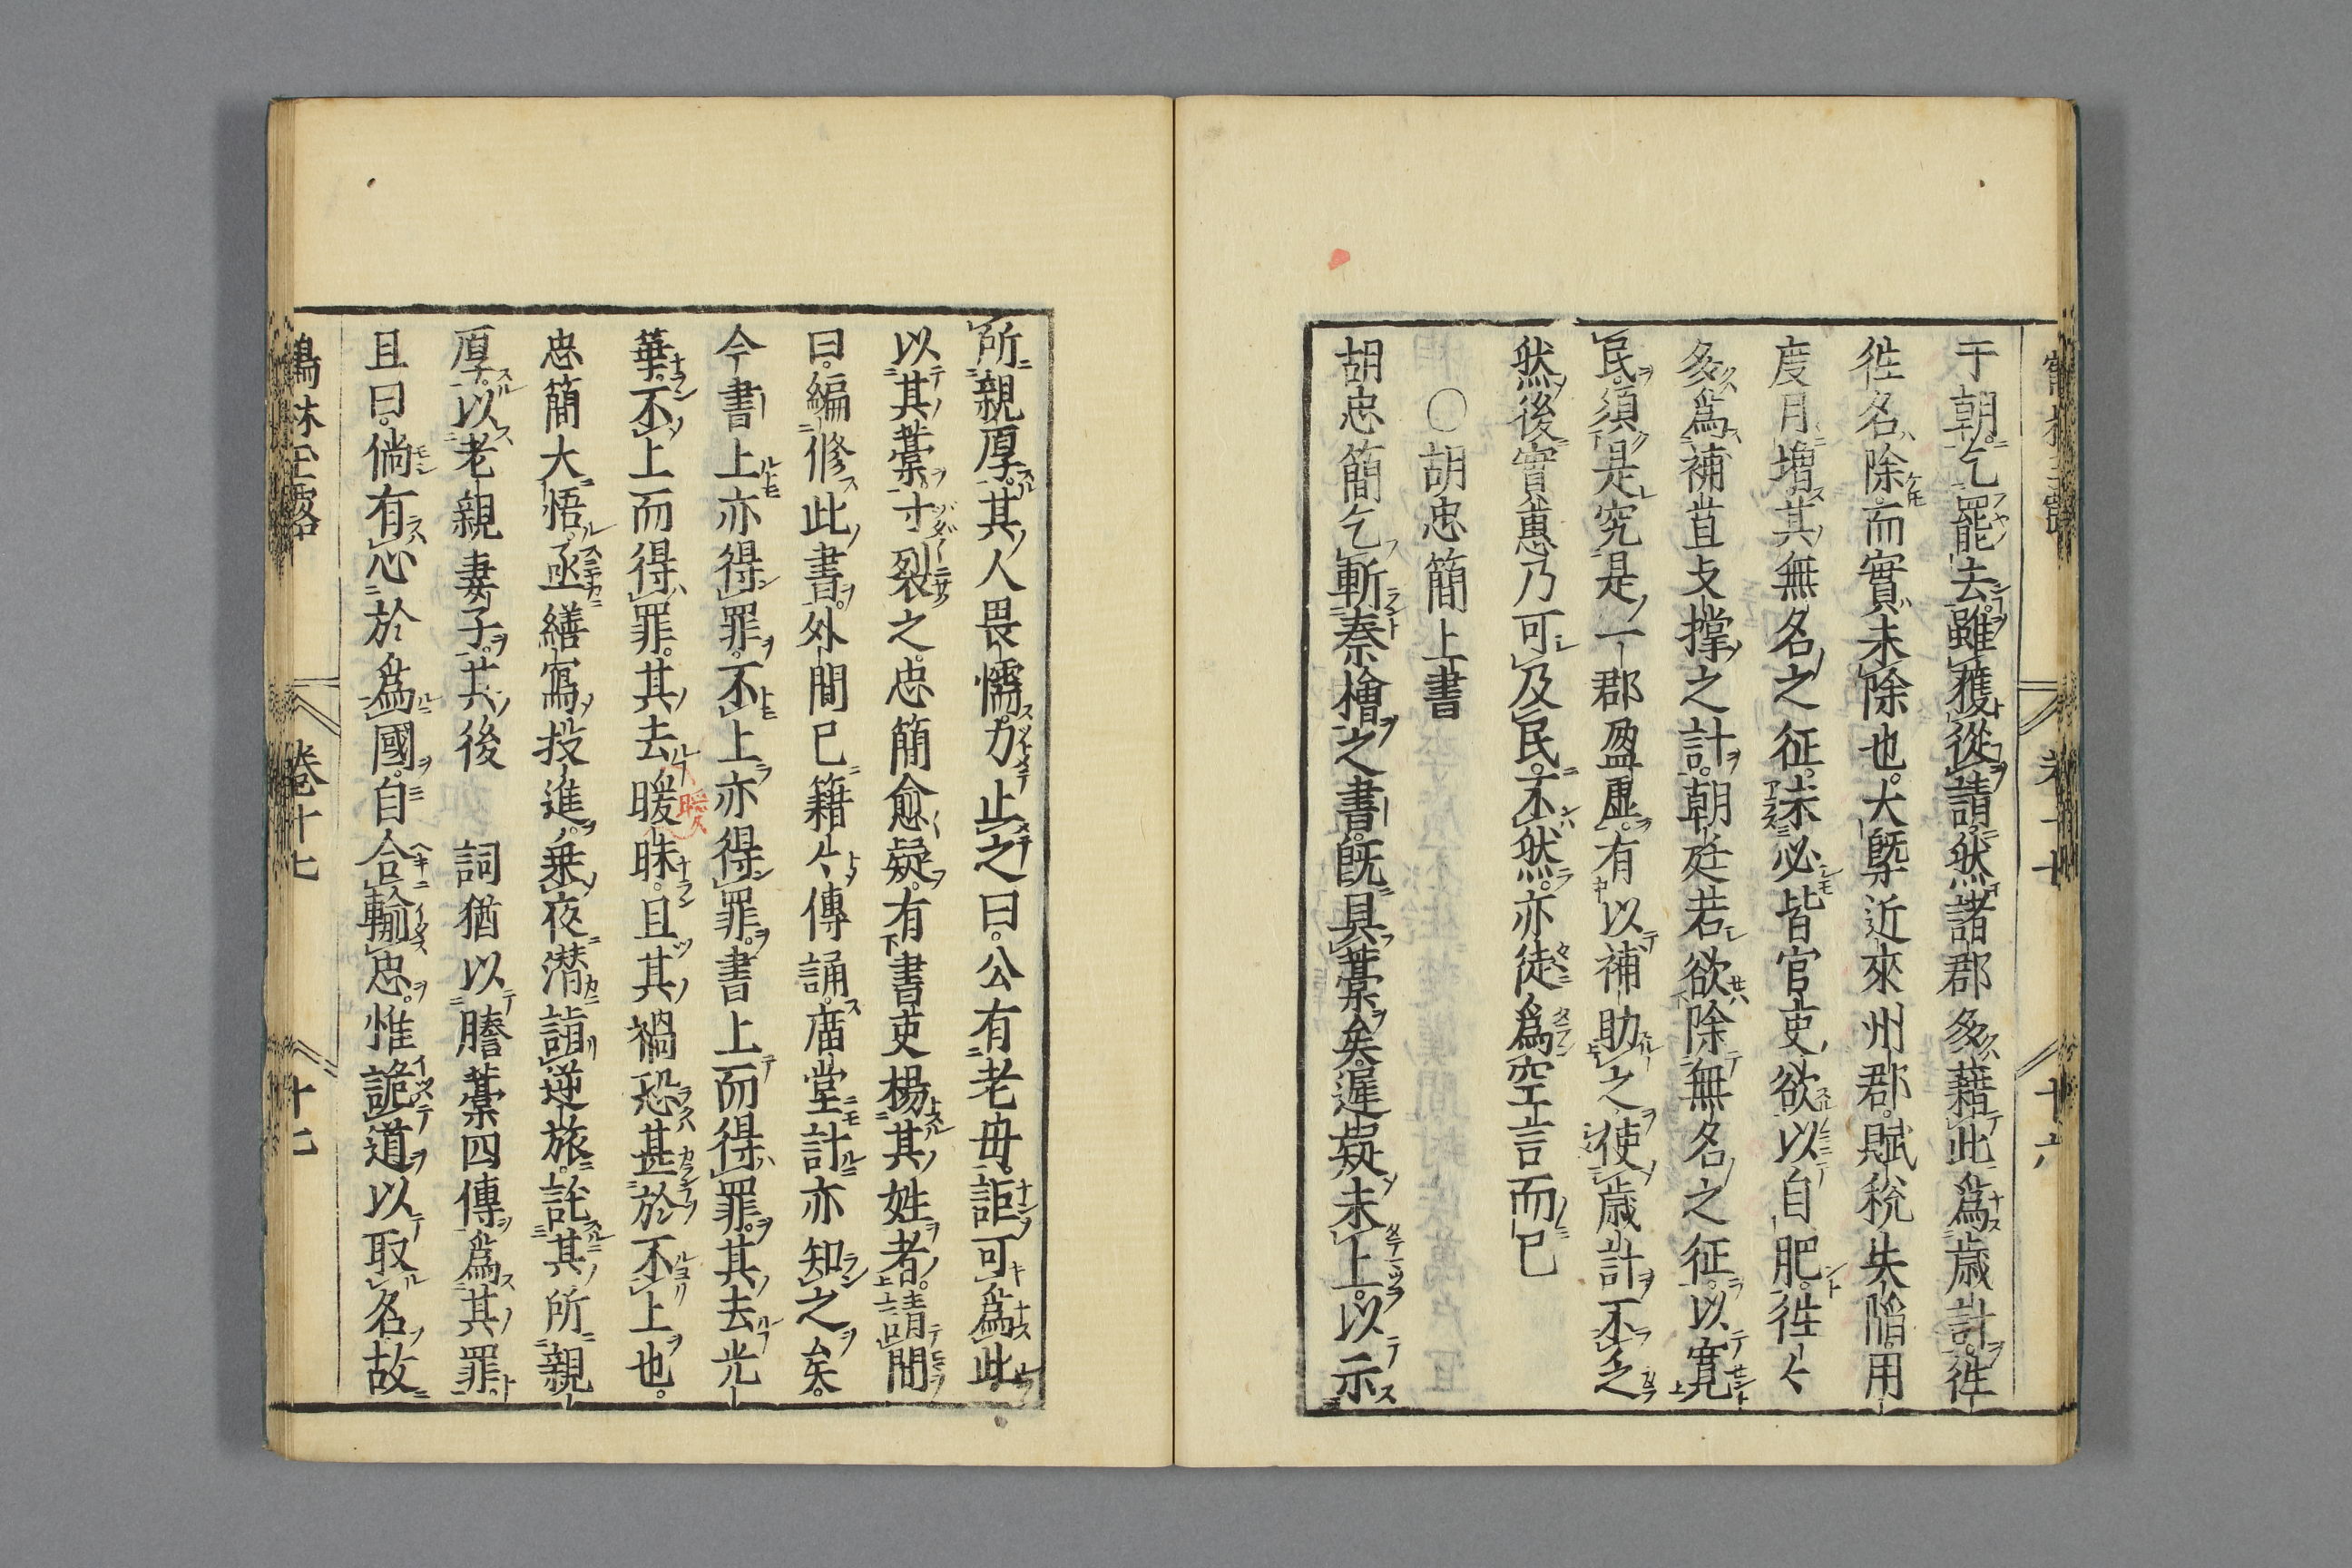 于朝乞罷去雖獲從請然諸郡多藉此爲歲計徃
徃名除而實未除也大槩近來州郡賦稅失陷用
度月增其無名之征未必皆官吏欲以自肥徃〻
多爲補苴支撑之計朝廷若欲除無名之征以寬
民須是究是一郡盈虛有以補助之使歲計不乏
然後實惠乃可及民不然亦徒爲空言而已
〇胡忠簡上書
胡忠簡乞斬秦檜之書既具藁矣遲疑未上以示
所親厚其人畏懦力止之曰公有老母詎可爲此
以其藁寸裂之忠簡愈疑有書吏楊其姓者請間
曰編修此書外間已籍〻傳誦廣堂計亦知之矣
今書上亦得罪不上亦得罪書上而得罪其去光
華不上而得罪其去暖昧且其禍恐甚於不上也
忠簡大悟亟繕寫投進乗夜潜詣逆旅託其所親
厚以老親妻子其後 詞猶以謄藁四傳爲其罪
且曰倘有心於爲國自合輸忠惟詭道以取名故
鶴林玉露 卷十七